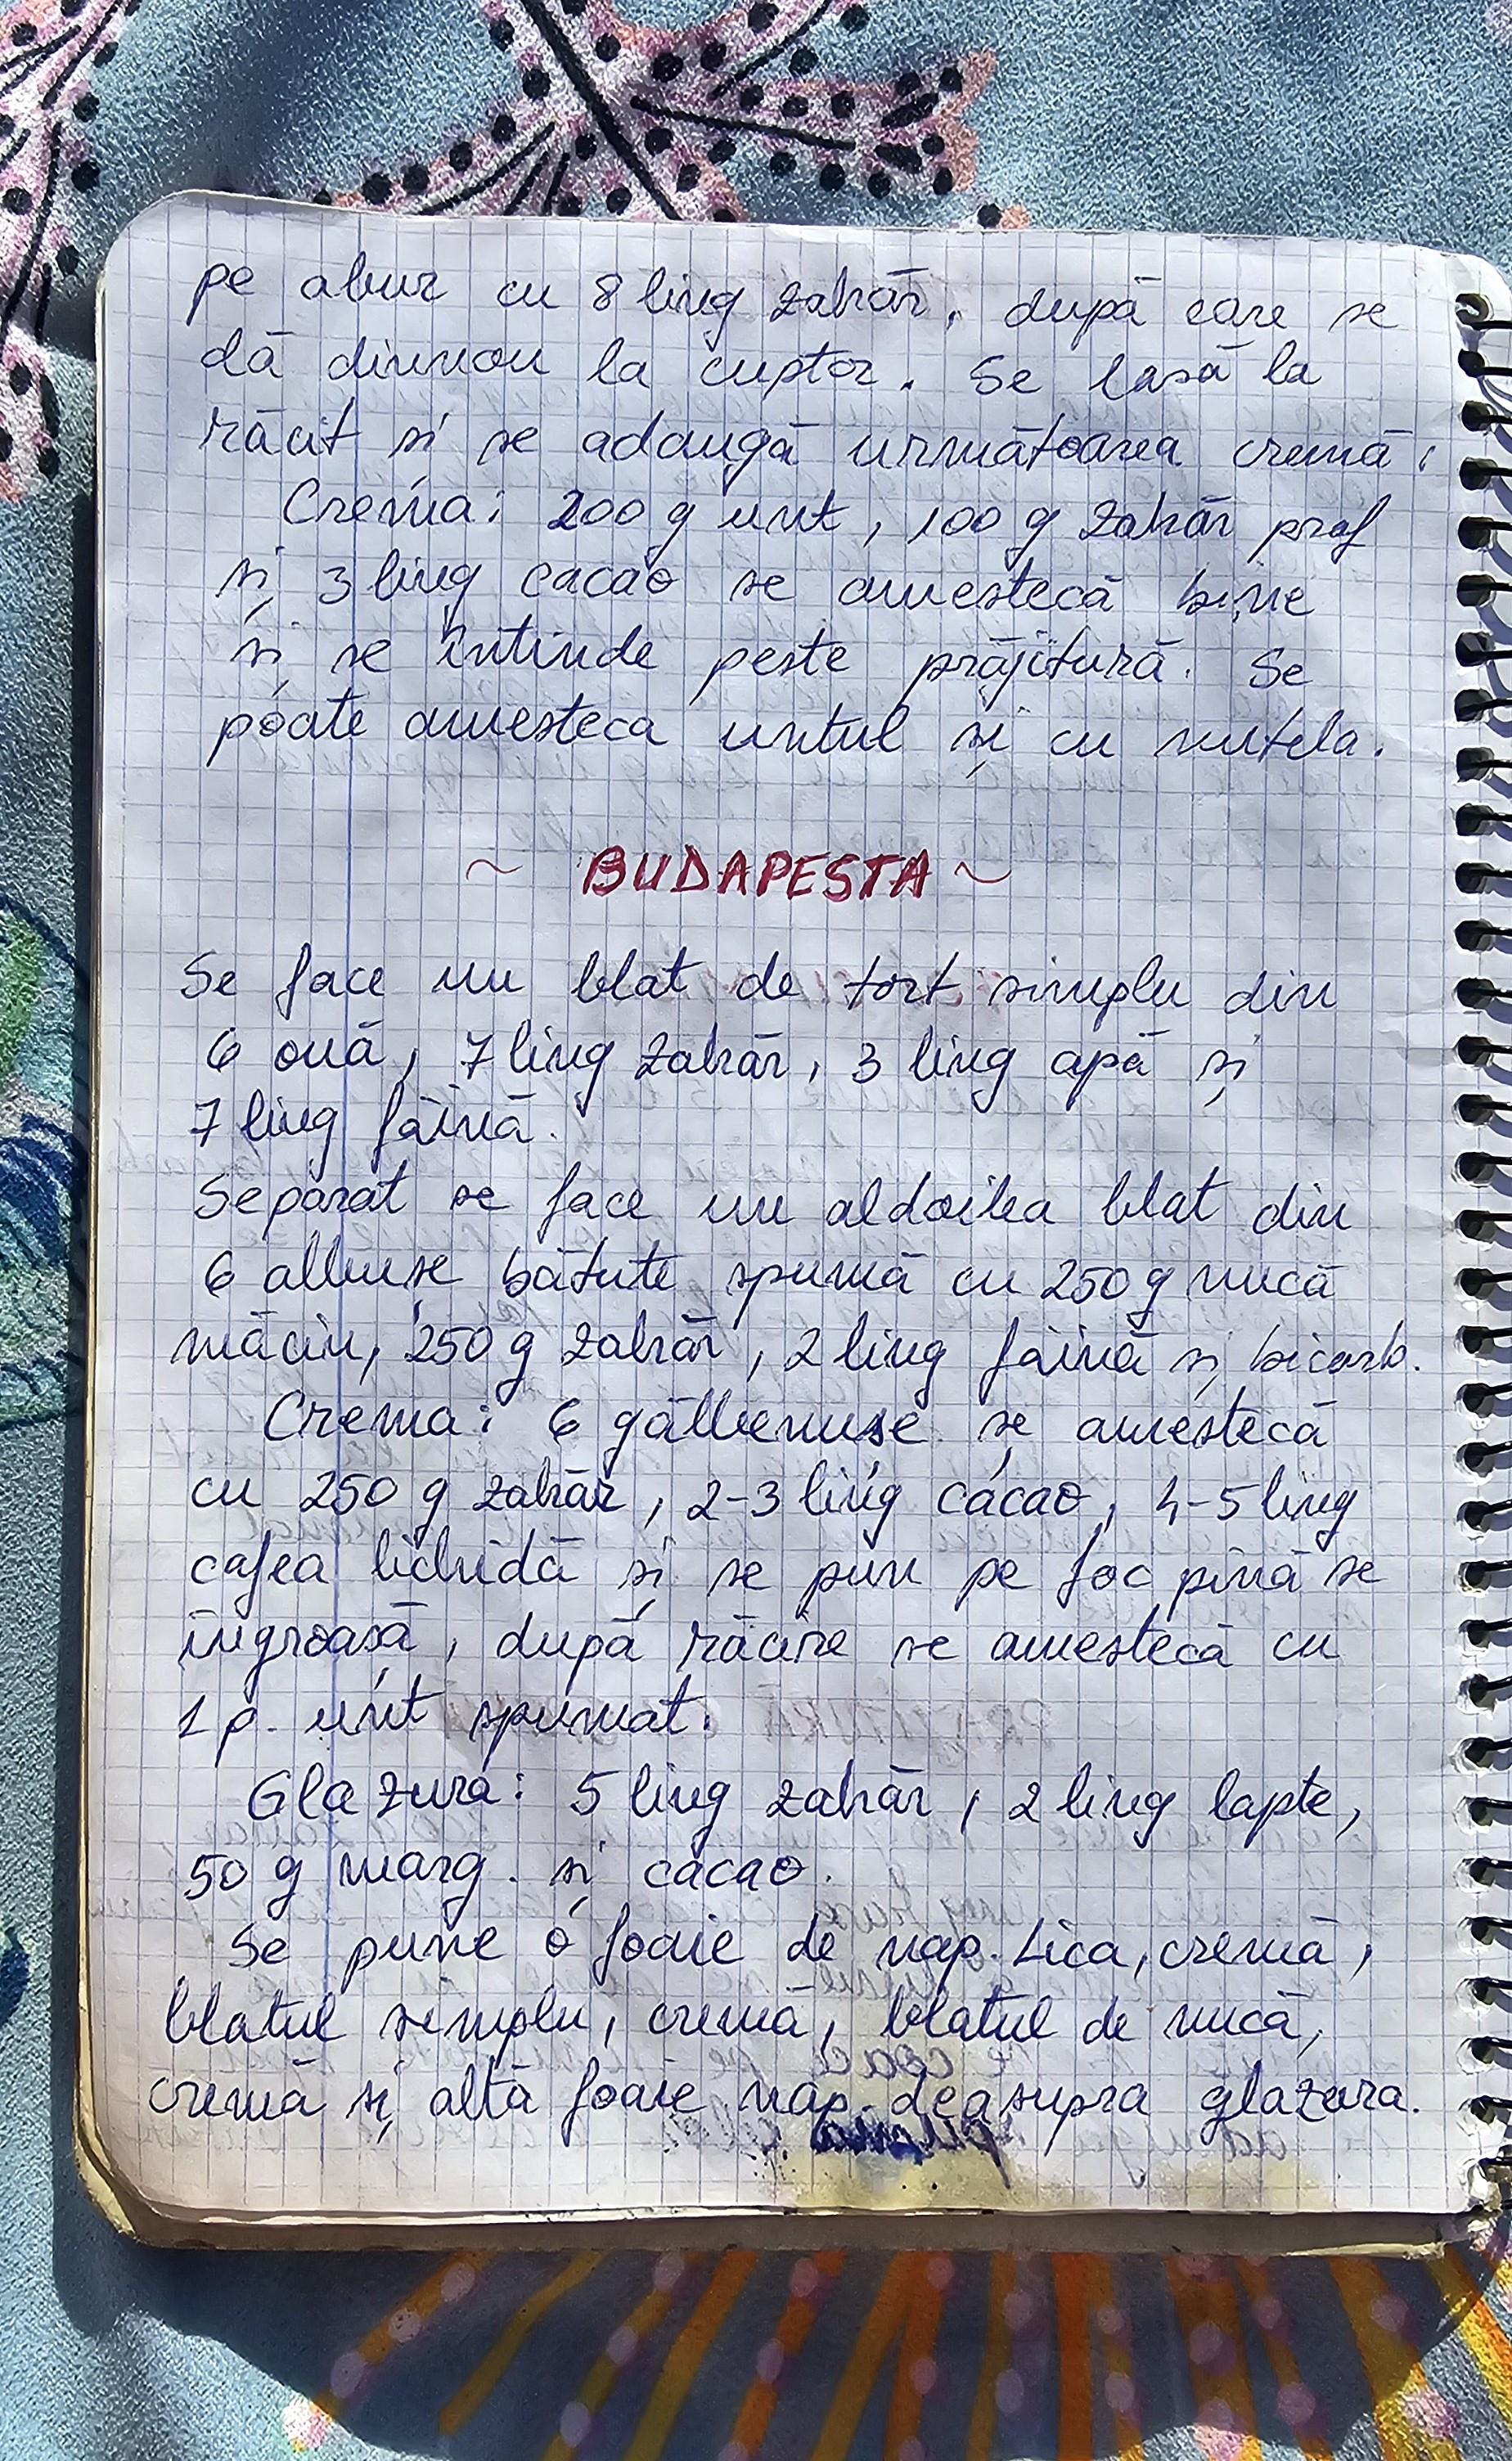 pe abur cu 8 ling zahăr, după care se
dă dinnou la cuptor. Se lasă la
răcit și se adaugă următoarea cremă:
Crema: 200 g unt, 100 g zahăr praf
și 3 ling cacao se amestecă bine
și se întinde peste prăjitură. Se
poate amesteca untul și cu nutela.
~ BUDAPESTA ~
Se face un blat de tort simplu din
6 ouă, 7 ling zahăr, 3 ling apă și
7 ling făină.
Separat se face un aldoilea blat din
6 albușe bătute spumă cu 250 g nucă
măcin, 250 g zahăr, 2 ling făină și bicarb.
Crema: 6 gălbenușe se amestecă
cu 250 g zahăr, 2-3 ling cacao, 4-5 ling
cafea lichidă și se pun pe foc pînă se
îngroașă, după răcire se amestecă cu
1 p. unt spumat.
Glazura: 5 ling zahăr, 2 ling lapte,
50 g marg. și cacao.
Se pune o foaie de nap. Lica, cremă,
blatul simplu, cremă, blatul de nucă,
cremă și altă foaie nap. deasupra glazura.